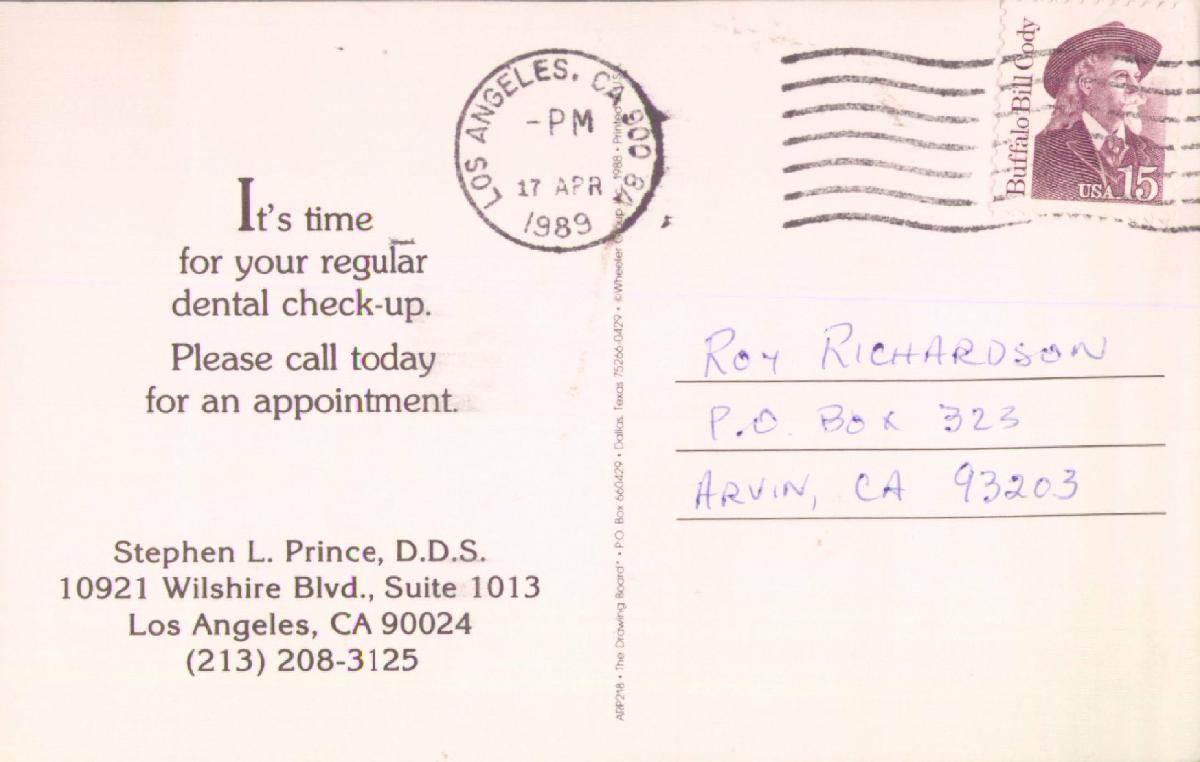 It's time
for your regular
dental check-up.
Please call today
for an appointment.
Stephen L. Prince, D.D.S.
10921 Wilshire Blvd., Suite 1013
Los Angeles, CA 90024
(213) 208-3125
LOS ANGELES, CA 900
-PM
17 APR
1989
ARP218 • The Drawing Board • P.O. Box 660429 • Dallas, Texas 75266-0429 • ©Wheeler Group 1988 • Printed
Buffalo Bill Cody
USA 15
Roy Richardson
P.O. Box 323
Arvin, CA 93203